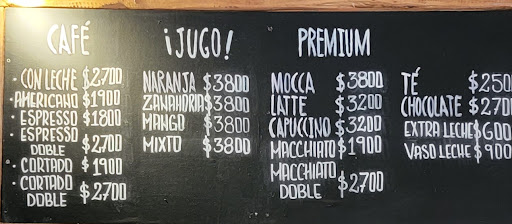 CAFÉ
· CON LECHE $2,700
· AMERICANO $1900
· ESPRESSO $1800
· ESPRESSO
DOBLE $2,700
· CORTADO $1900
· CORTADO
DOBLE $2,700
¡JUGO!
NARANJA $3800
ZANAHORIA $3800
MANGO $3800
MIXTO $3800
PREMIUM
MOCCA $3800
LATTE $3200
CAPUCCINO $3200
MACCHIATO $1900
MACCHIATO
DOBLE $2,700
TÉ
CHOCOLATE
EXTRA LECHE $600
VASO LECHE $900